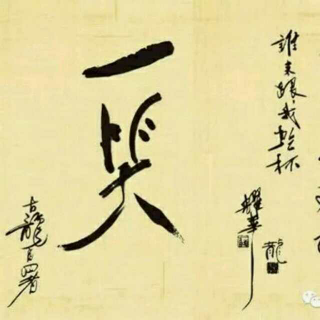 誰来跟我乾杯
耀華
龍
一笑
古龍自署